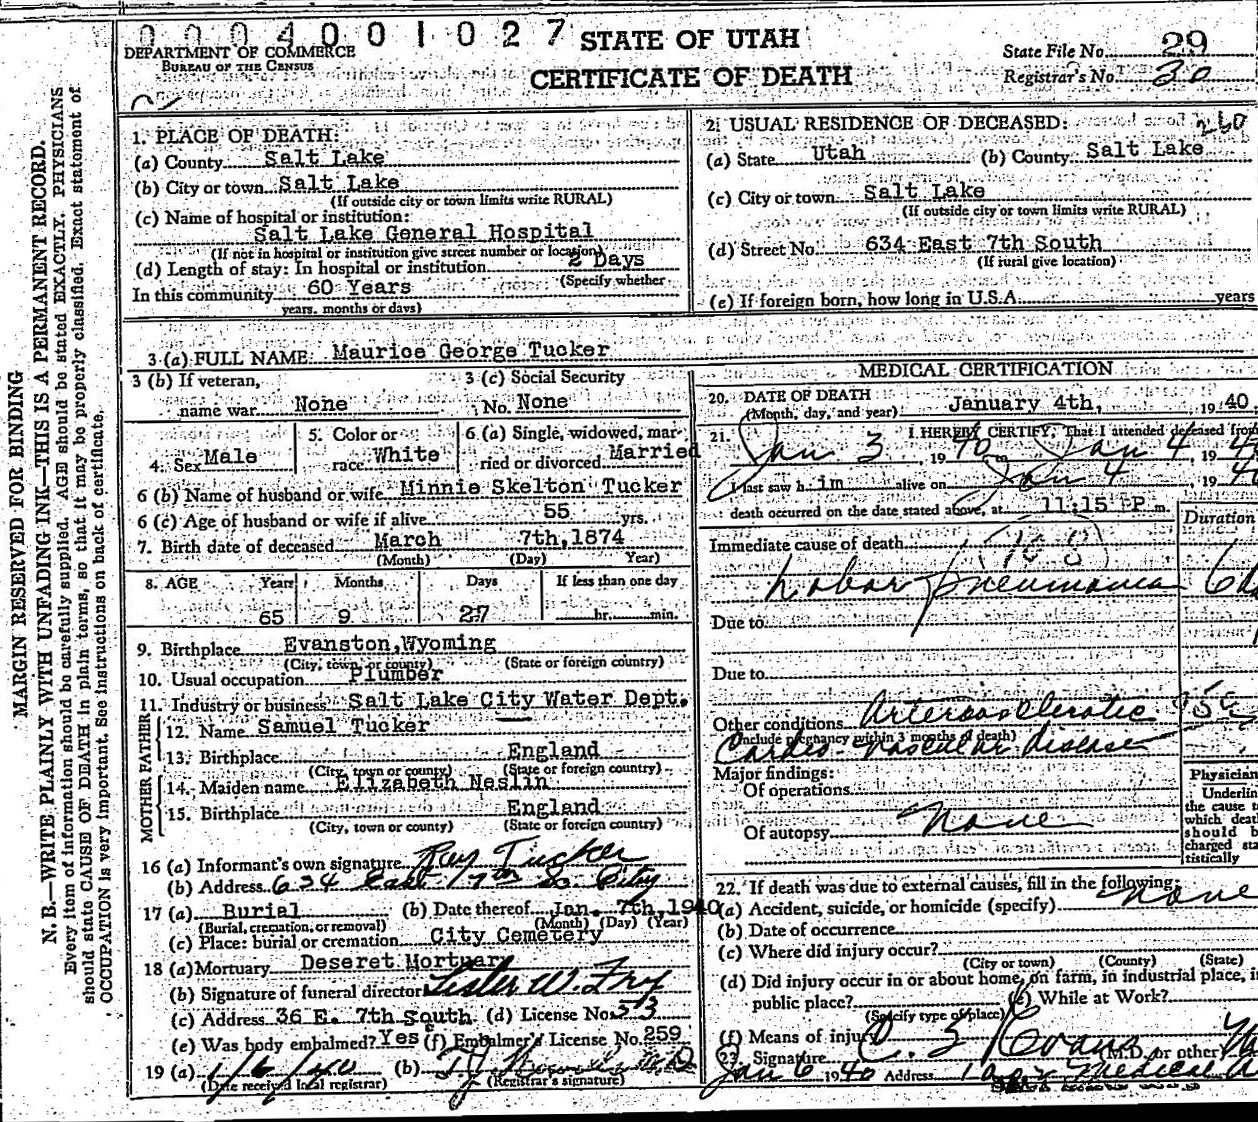 0004001027 STATE OF UTAH
DEPARTMENT OF COMMERCE
BUREAU OF THE CENSUS
CERTIFICATE OF DEATH
State File No. 29
Registrar's No. 30
MARGIN RESERVED FOR BINDING
N. B.—WRITE PLAINLY WITH UNFADING INK—THIS IS A PERMANENT RECORD.
Every item of information should be carefully supplied. AGE should be stated EXACTLY. PHYSICIANS
should state CAUSE OF DEATH in plain terms, so that it may be properly classified. Exact statement of
OCCUPATION is very important. See instructions on back of certificate.
1. PLACE OF DEATH:
(a) County Salt Lake
(b) City or town Salt Lake
(If outside city or town limits write RURAL)
(c) Name of hospital or institution:
Salt Lake General Hospital
(If not in hospital or institution give street number or location)
(d) Length of stay: In hospital or institution 2 Days
(Specify whether
In this community 60 Years
years, months or days)
2. USUAL RESIDENCE OF DECEASED: 260
(a) State Utah (b) County Salt Lake
(c) City or town Salt Lake
(If outside city or town limits write RURAL)
(d) Street No. 634 East 7th South
(If rural give location)
(e) If foreign born, how long in U.S.A. years
3 (a) FULL NAME: Maurice George Tucker
3 (b) If veteran,
name war None
3 (c) Social Security
No. None
4. Sex Male
5. Color or
race White
6 (a) Single, widowed, mar-
ried or divorced Married
6 (b) Name of husband or wife Minnie Skelton Tucker
6 (c) Age of husband or wife if alive 55 yrs.
7. Birth date of deceased March 7th, 1874
(Month) (Day) Year)
8. AGE Years Months Days If less than one day
65 9 27 hr. min.
9. Birthplace Evanston, Wyoming
(City, town, or county) (State or foreign country)
10. Usual occupation Plumber
11. Industry or business Salt Lake City Water Dept.
FATHER
12. Name Samuel Tucker
13. Birthplace England
(City, town or county) (State or foreign country)
MOTHER
14. Maiden name Elizabeth Neslin
15. Birthplace England
(City, town or county) (State or foreign country)
16 (a) Informant's own signature Ray Tucker
(b) Address 634 East 7th So. City
17 (a) Burial (b) Date thereof Jan. 7th, 1940
(Burial, cremation, or removal) (Month) (Day) (Year)
(c) Place: burial or cremation City Cemetery
18 (a) Mortuary Deseret Mortuary
(b) Signature of funeral director Lester W. Fry
(c) Address 36 E. 7th South (d) License No. 53
(e) Was body embalmed? Yes (f) Embalmer's License No. 259
19 (a) 1/6/40 (b)
(Date received local registrar) (Registrar's signature)
MEDICAL CERTIFICATION
20. DATE OF DEATH
(Month, day, and year) January 4th, 1940
21. I HEREBY CERTIFY, That I attended deceased from
Jan 3 1940 Jan 4 19 4
I last saw him alive on Jan 4, 19 4
death occurred on the date stated above, at 11:15 P m.
Duration
Immediate cause of death 108
Lobar pneumonia 6
Due to
Due to
Other conditions Arteriosclerotic 95c
(Include pregnancy within 3 months of death)
Cardio-vascular disease
Major findings:
Of operations
Of autopsy None
Physician
Underlin
the cause t
which deat
should b
charged sta
tistically
22. If death was due to external causes, fill in the following:
(a) Accident, suicide, or homicide (specify) None
(b) Date of occurrence
(c) Where did injury occur?
(City or town) (County) (State)
(d) Did injury occur in or about home, on farm, in industrial place, i
public place? (e) While at Work?
(Specify type of place)
(f) Means of injury
23. Signature C. S. Evans (M.D. or other)
Jan 6 1940 Address Medical